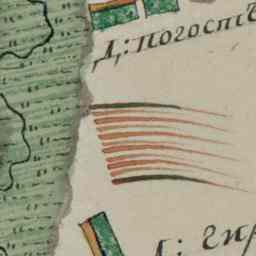 Д: погостъ
Д: гир